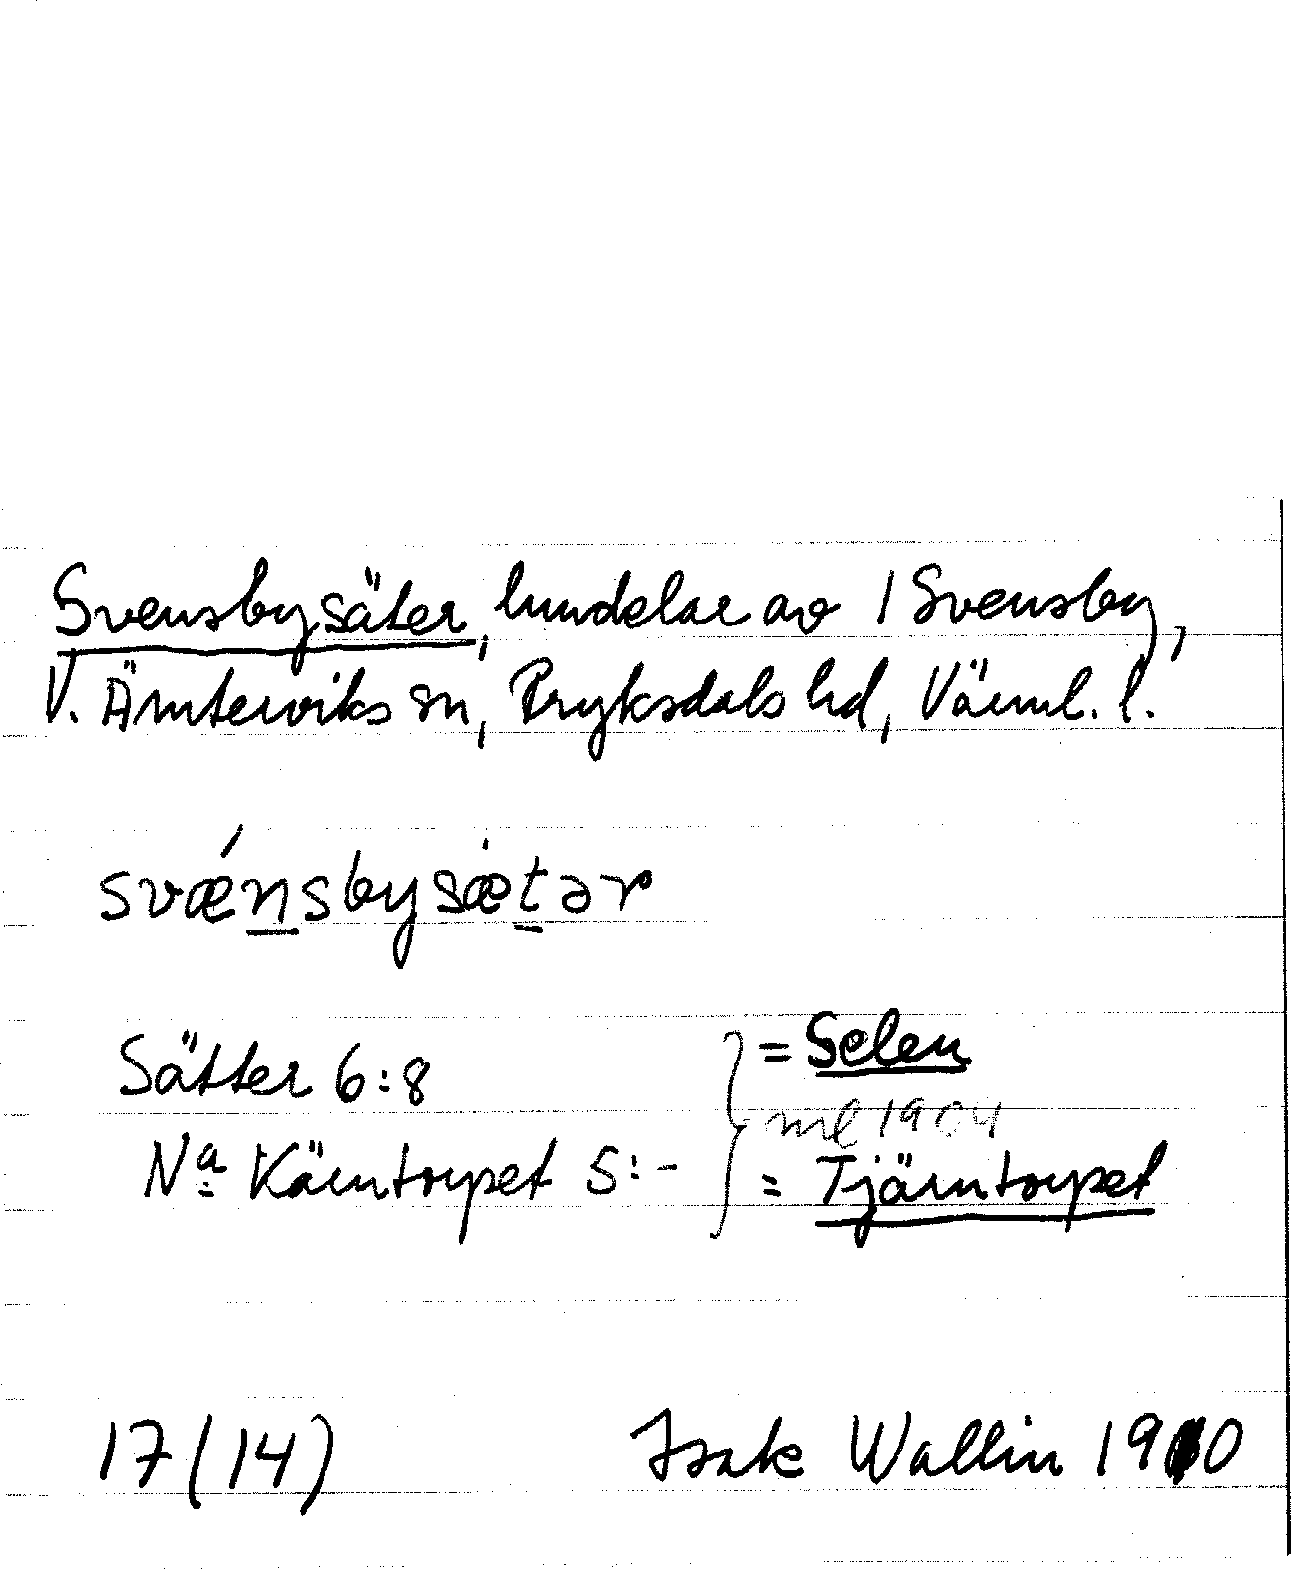 Svensbysäter, lundelar av 1 Svensby,
V. Ämterviks sn, Fryksdals hd, Värml. l.
svǽnsbysǽtər
Sätter 6:8 = Selen
ml 1904
Na Kärntorpet 5:- = Tjärntorpet
17(14) Isak Wallin 1910